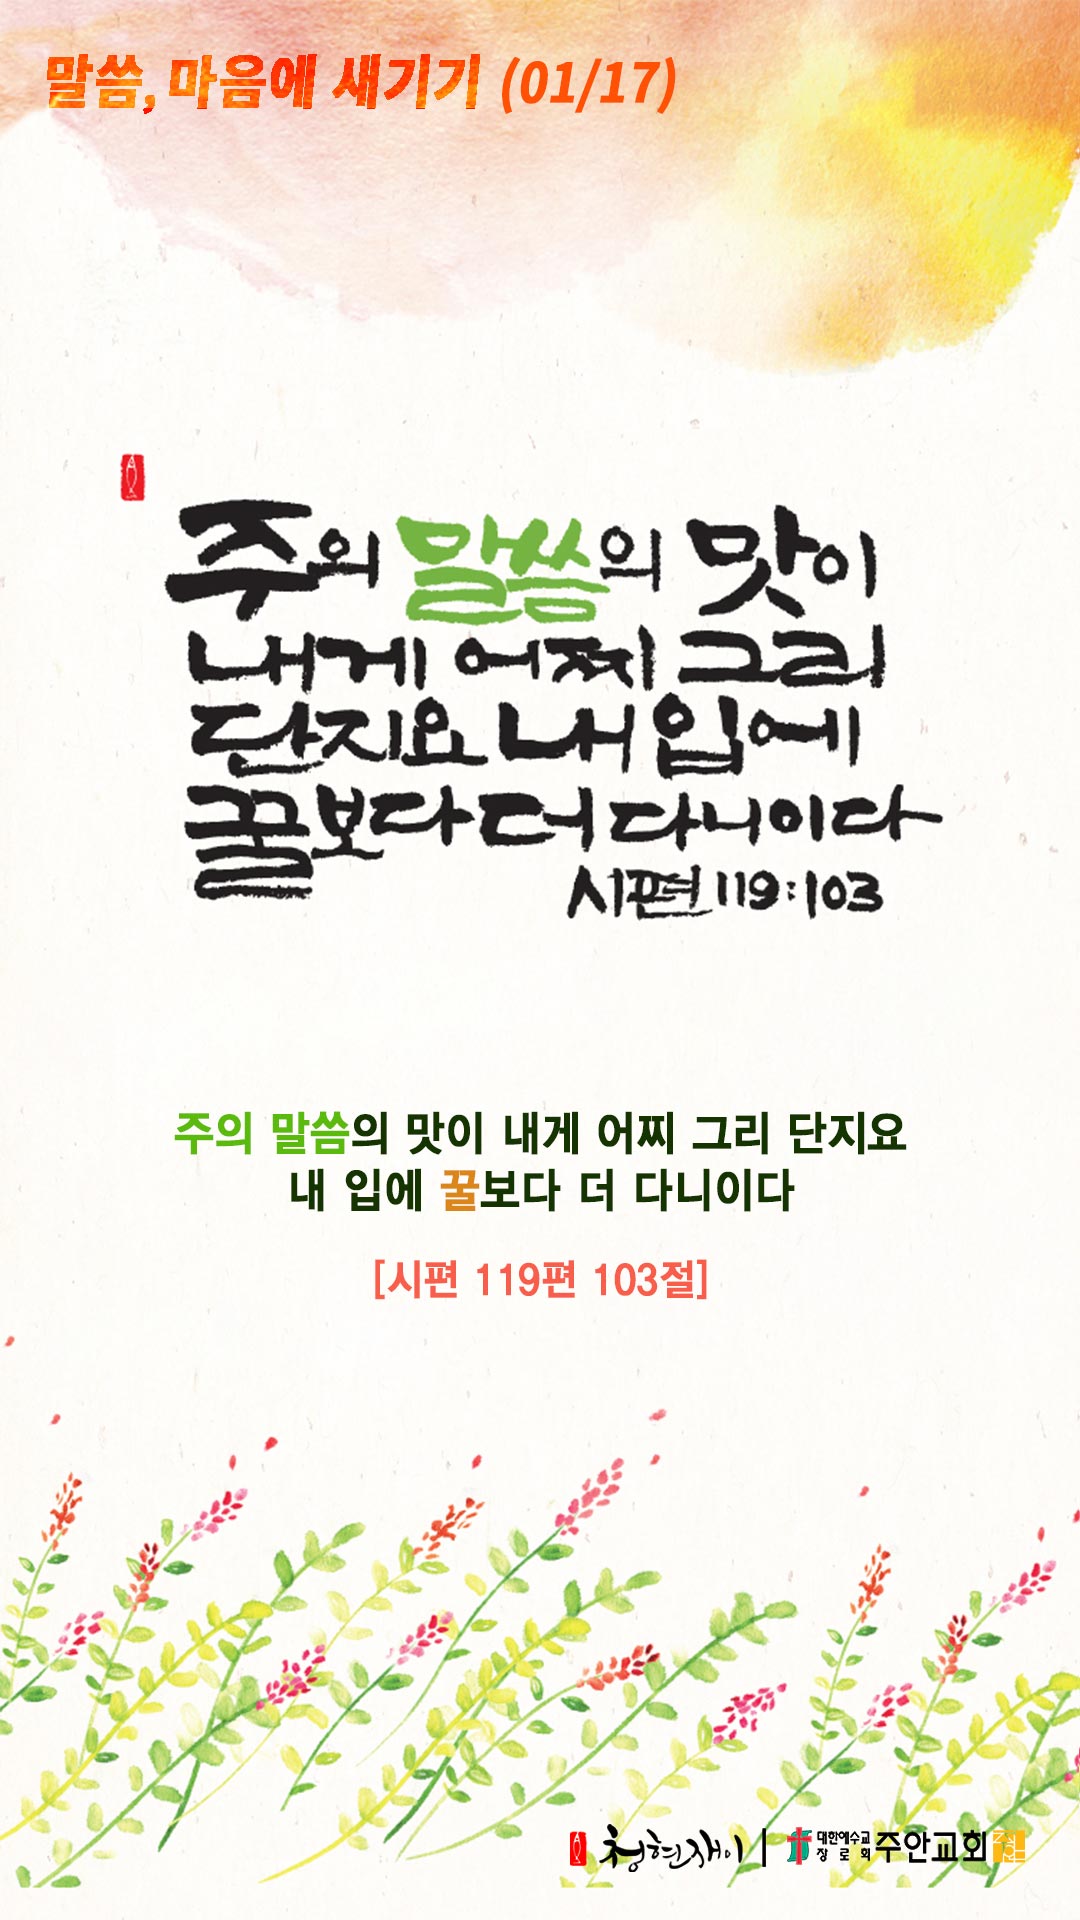 말씀, 마음에 새기기 (01/17)
주의 말씀의 맛이
내게 어찌 그리
단지요 내 입에
꿀보다 더 다니이다
시편 119:103
주의 말씀의 맛이 내게 어찌 그리 단지요
내 입에 꿀보다 더 다니이다
[시편 119편 103절]
청현재이 | 대한예수교장로회 주안교회